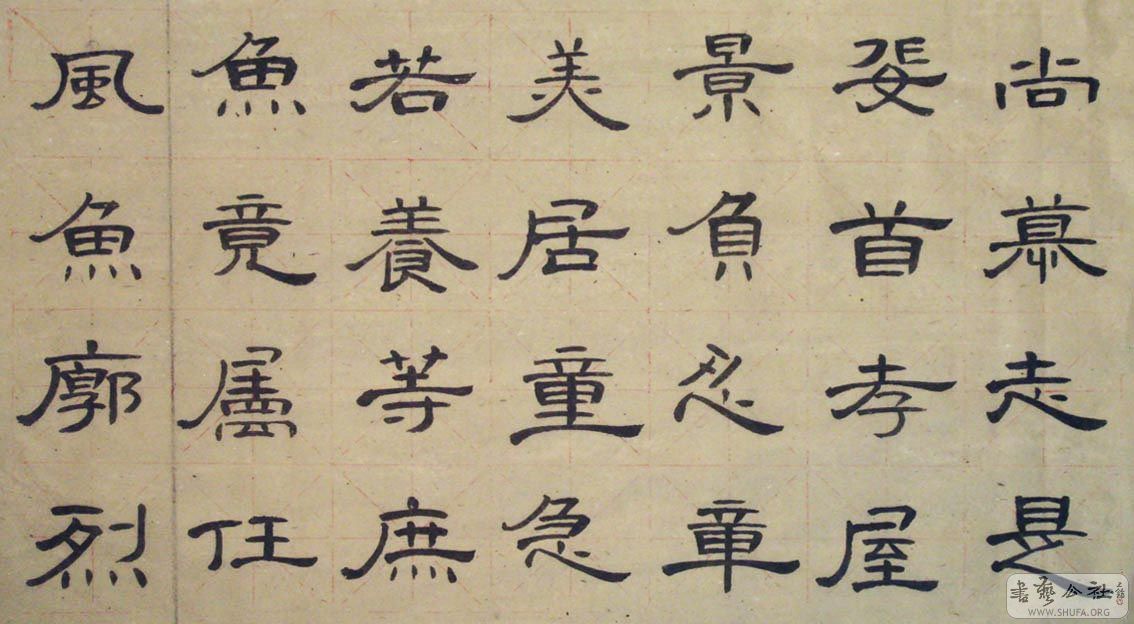 尚慕走是
首孝屋
景負忍章
美居童急
若養等庶
魚竟任
風魚廓烈
書藝公社
WWW.SHUFA.ORG